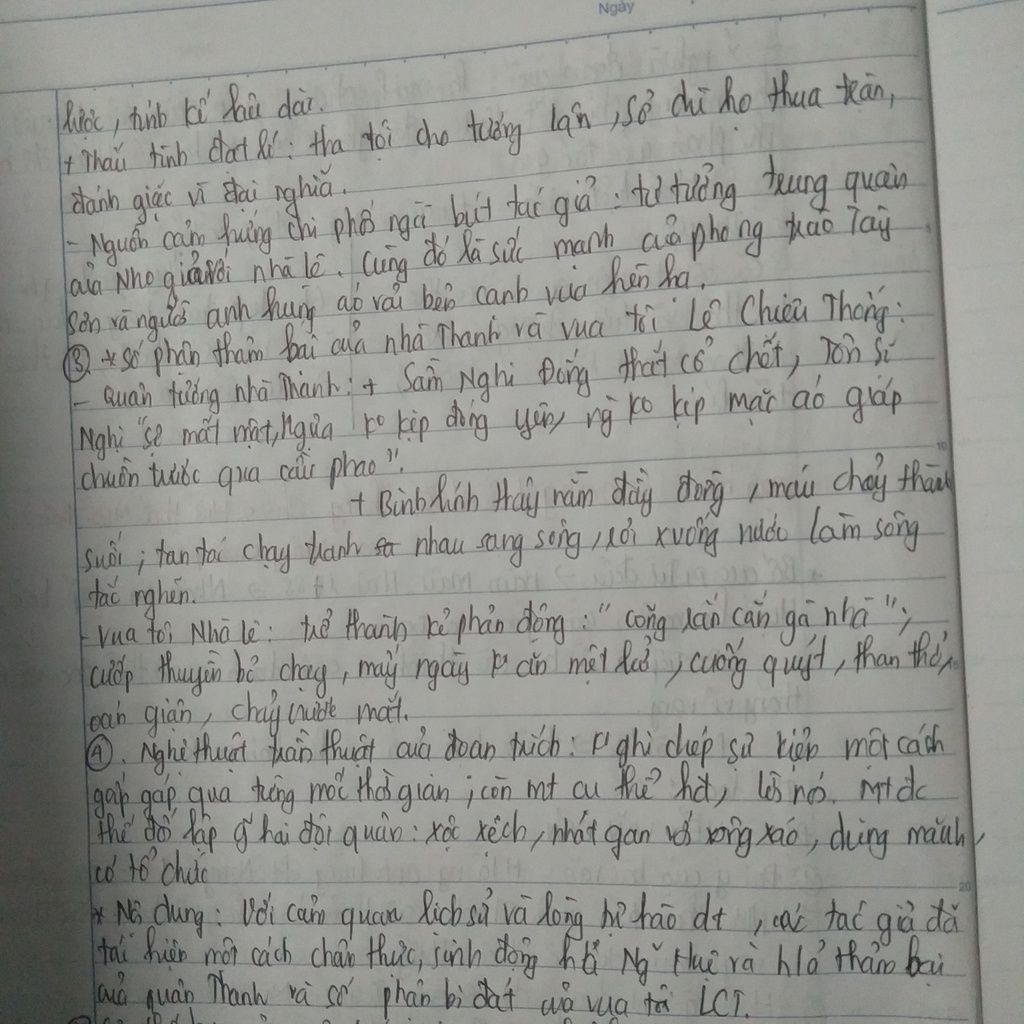 Ngày
lược, tính kế lâu dài.
+ Thấu tình đạt lí: tha tội cho tướng lận, sở dĩ họ thua trận,
đánh giặc vì đại nghĩa.
- Nguồn cảm hứng chi phối ngòi bút tác giả: tư tưởng trung quân
của Nho giả với nhà lê. Cũng đó là sức mạnh của phong trào Tây
Sơn và người anh hùng áo vải bên cạnh vua hèn hạ.
③ * số phận thảm bại của nhà Thanh và vua tôi Lê Chiêu Thống:
- Quân tướng nhà Thanh: + Sầm Nghi Đống thắt cổ chết, Tôn Sĩ
Nghị "sợ mất mật, Ngựa ko kịp đóng yên, ng ko kịp mặc áo giáp
chuồn trước qua cầu phao".
+ Binh lính thây nằm đầy đồng, máu chảy thành
suối; tan tác chạy tranh nhau sang sông, rơi xuống nước làm sông
tắc nghẽn.
- Vua tôi Nhà lê: trở thành kẻ phản động: "cõng rắn cắn gà nhà";
cướp thuyền bỏ chạy, mấy ngày ko ăn mệt lử, cuống quýt, than thở,
oán giận, chảy nước mắt.
④. Nghệ thuật trần thuật của đoạn trích: ko ghi chép sự kiện một cách
gấp gáp qua từng mốc thời gian; còn mt cụ thể hđ, lời nói. Mt đc
thế đối lập g hai đội quân: xộc xệch, nhát gan với xông xáo, dũng mãnh,
có tổ chức
* Nội dung: Với cảm quan lịch sử và lòng tự hào dt, các tác giả đã
tái hiện một cách chân thực, sinh động Ng Huệ và thảm bại
của quân Thanh và số phận bi đát của vua tôi LCT.